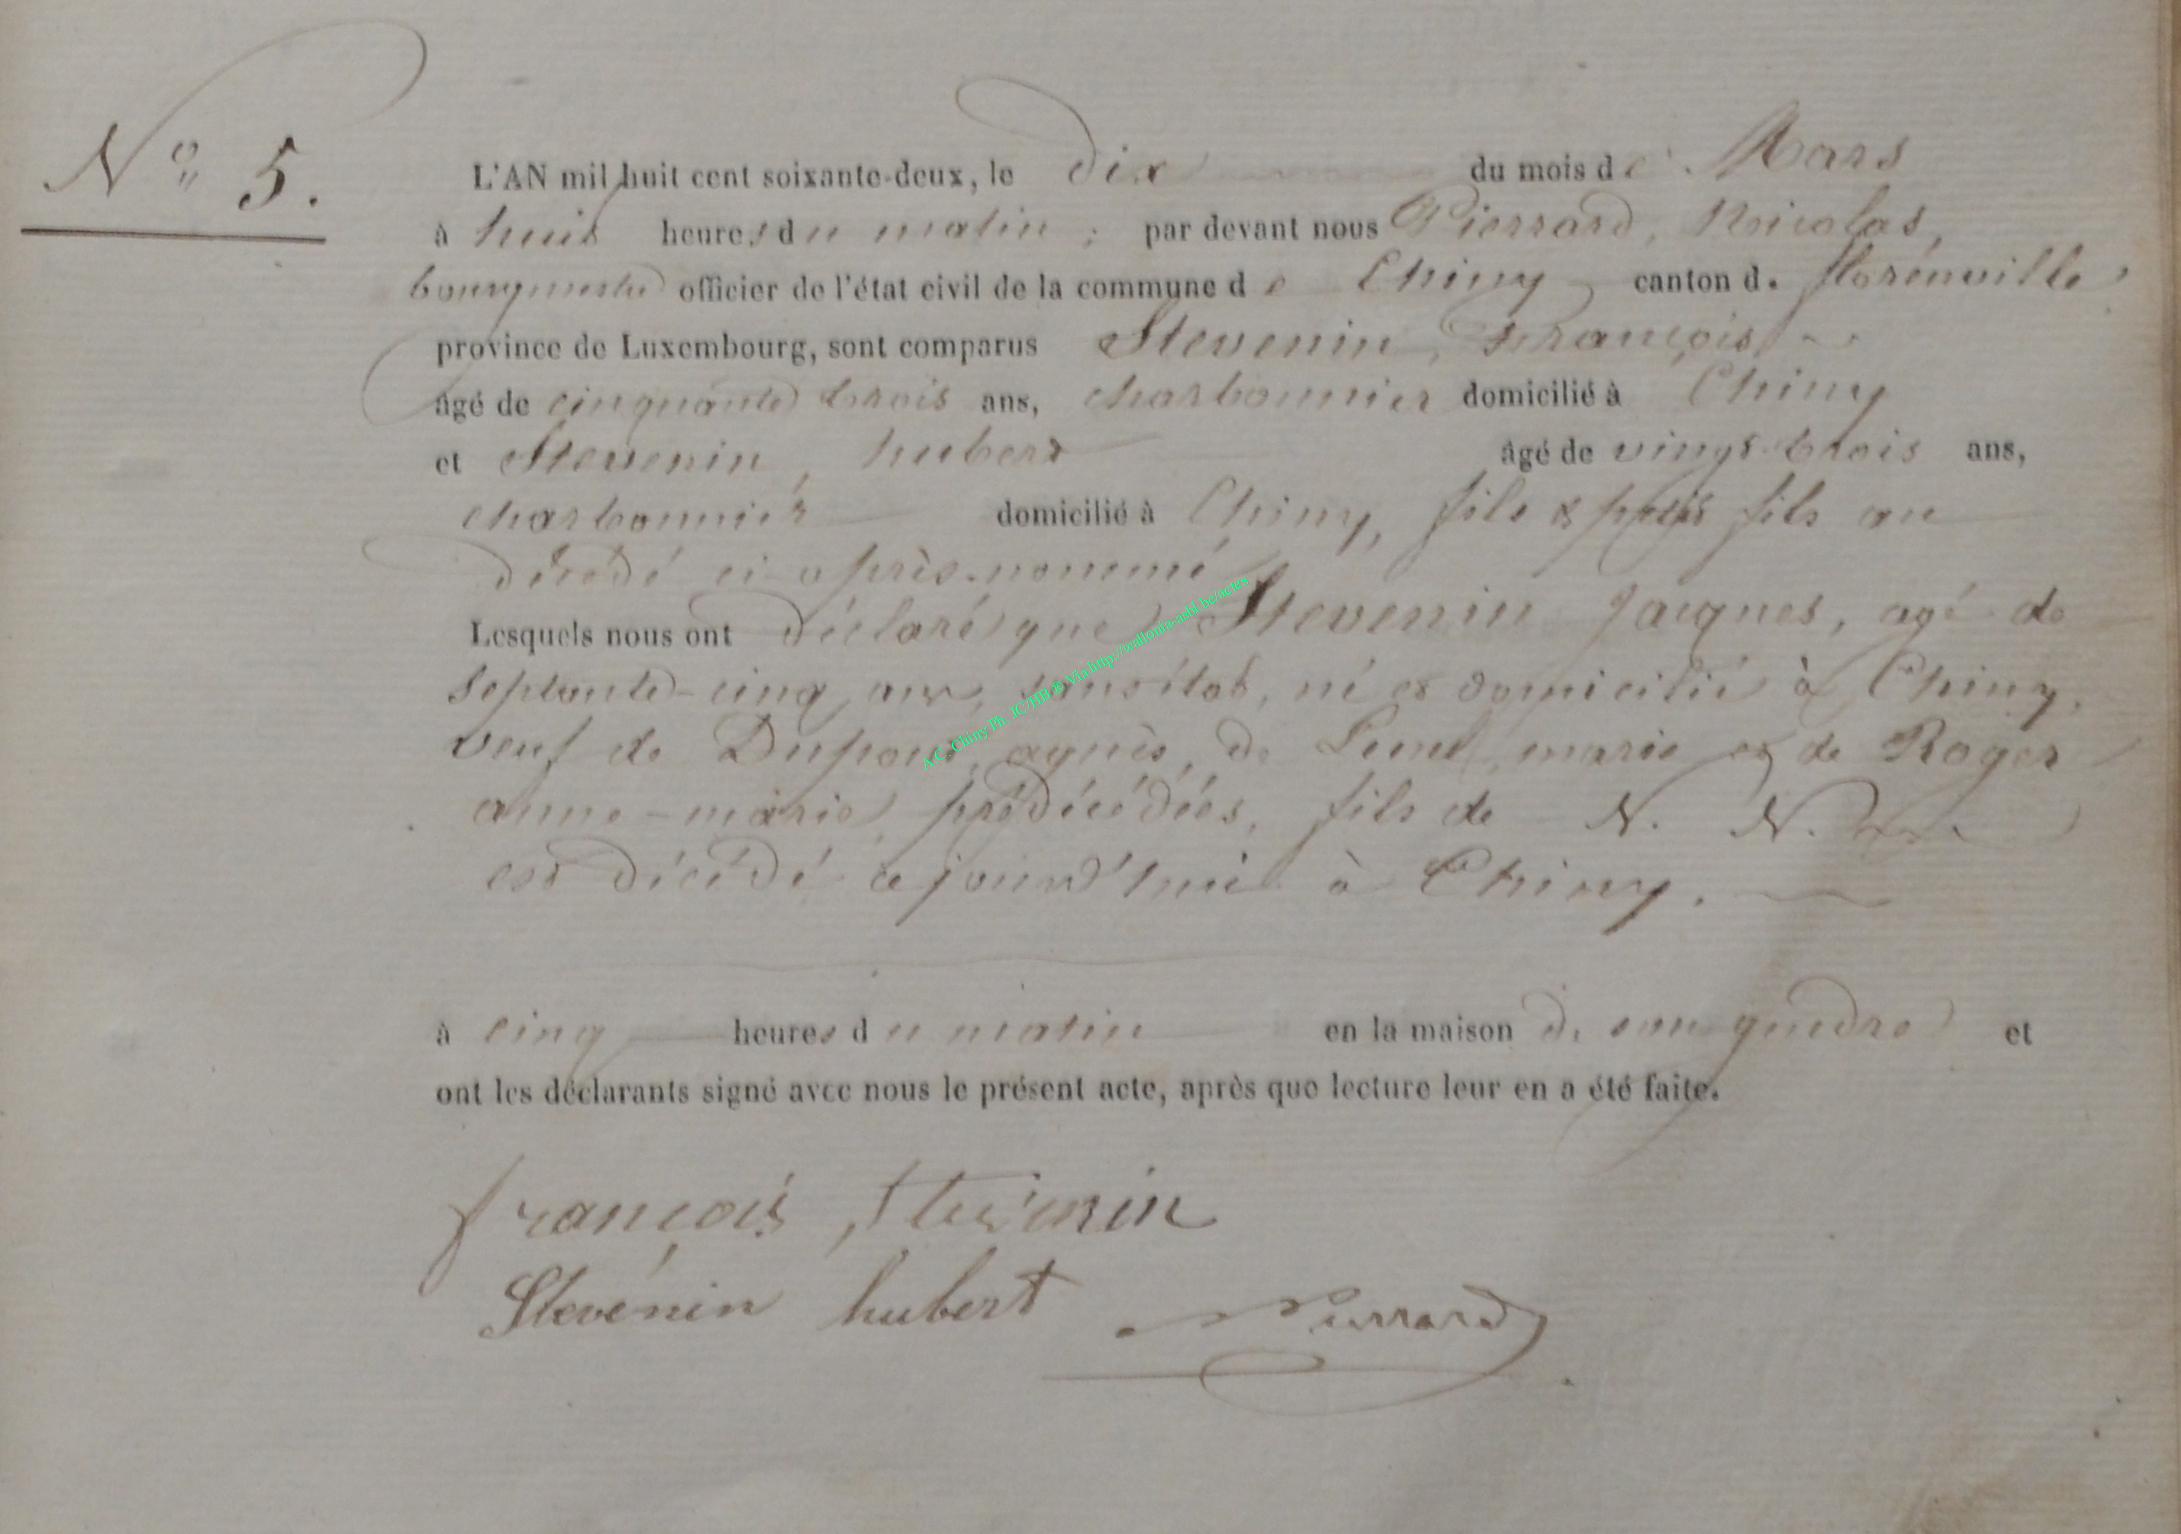 N° 5.
L'AN mil huit cent soixante-deux, le dix du mois de Mars
à huit heures du matin ; par devant nous Pierrard, Nicolas,
bourgmestre officier de l'état civil de la commune de Chiny canton d. florenville,
province de Luxembourg, sont comparus Stevenin, François
âgé de cinquante trois ans, charbonnier domicilié à Chiny
et Stevenin, hubert âgé de vingt-trois ans,
charbonnier domicilié à Chiny, fils & petit fils au
décédé ci-après-nommé
Lesquels nous ont déclaré que Stevenin Jacques, agé de
septante-cinq ans, sans état, né et domicilié à Chiny,
veuf de Dupont, agnès, de marie et de Roger
anne-marie, prédécédées, fils de N. N.
est décédé cejourd'hui à Chiny.
à cinq heures du matin en la maison de son gendre et
ont les déclarants signé avec nous le présent acte, après que lecture leur en a été faite.
françois Stevenin
Stevenin hubert Pierrard
A.C. Chiny Ph. JC/HB ® Via http://wallonia-asbl.be/actes